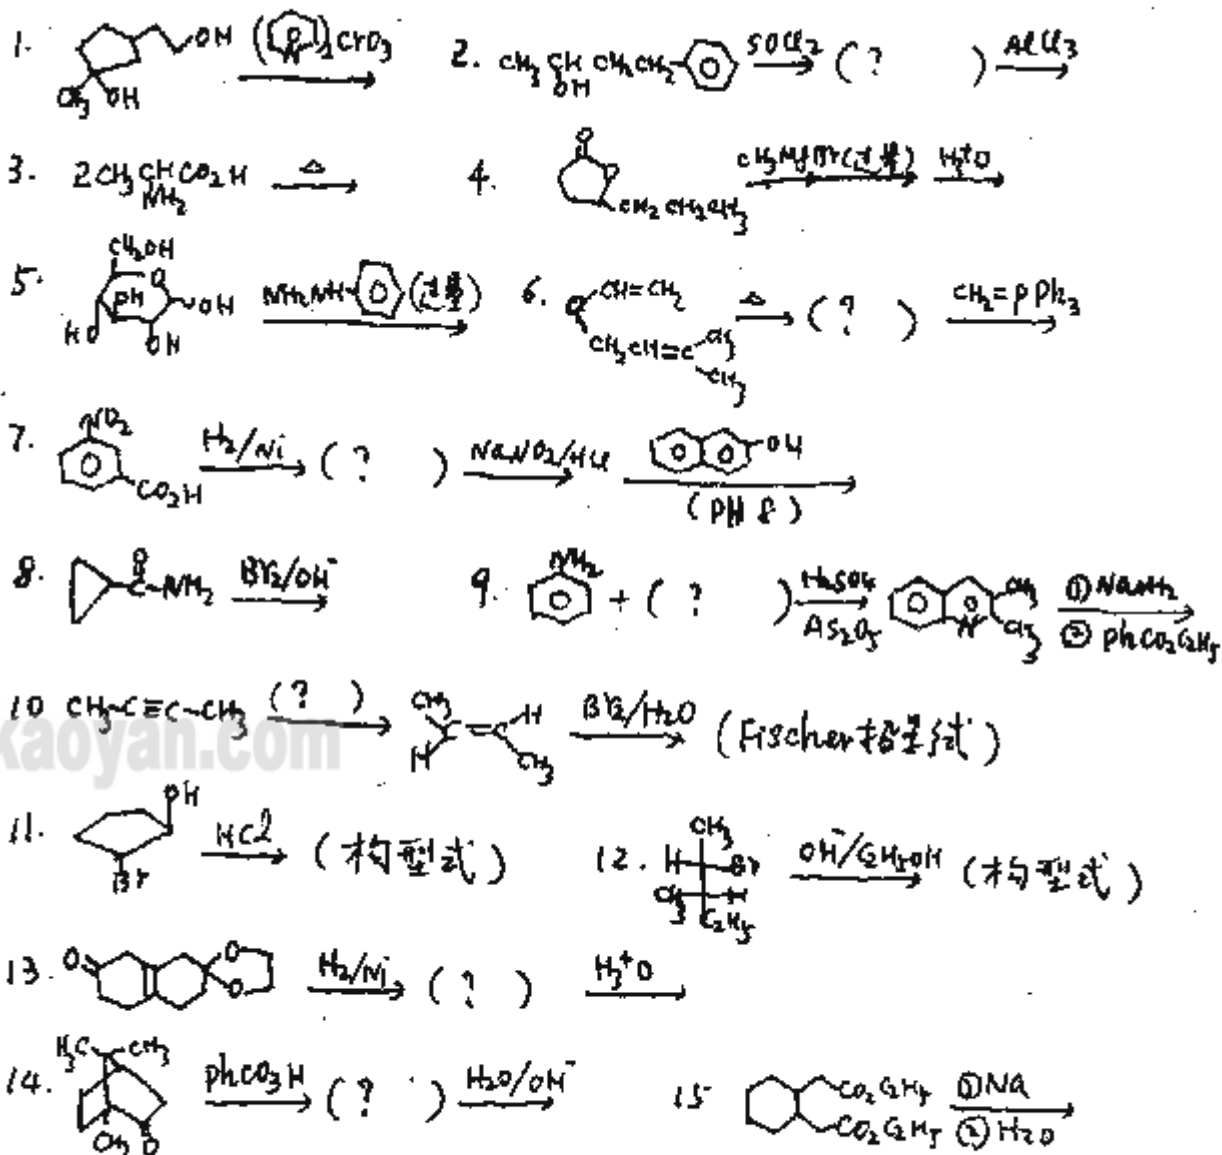 1. OH CH3 OH (N)2CrO3
2. CH3CHCH2CH2 OH SOCl2 ( ? ) AlCl3
3. 2CH3CHCO2H NH2 △
4. O O CH2CH2CH3 CH3MgBr(过量) H3+O
5. CH2OH O OH HO OH OH NH2NH (过量)
6. O CH=CH2 CH2CH=C CH3 CH3 △ ( ? ) CH2=PPh3
7. NO2 CO2H H2/Ni ( ? ) NaNO2/HCl OH (PH 8)
8. O C-NH2 Br2/OH-
9. NH2 + ( ? ) H2SO4 As2O5 N CH3 CH3 ①NaNH2 ②phCO2C2H5
10 CH3-C≡C-CH3 ( ? ) CH3 H C=C H CH3 Br2/H2O (Fischer构型式)
kaoyan.com
11. OH Br HCl (构型式)
12. CH3 H Br CH3 H C2H5 OH-/C2H5OH (构型式)
13. O O O H2/Ni ( ? ) H3+O
14. H3C CH3 CH3 O phCO3H ( ? ) H2O/OH-
15 CO2C2H5 CO2C2H5 ①Na ②H2O